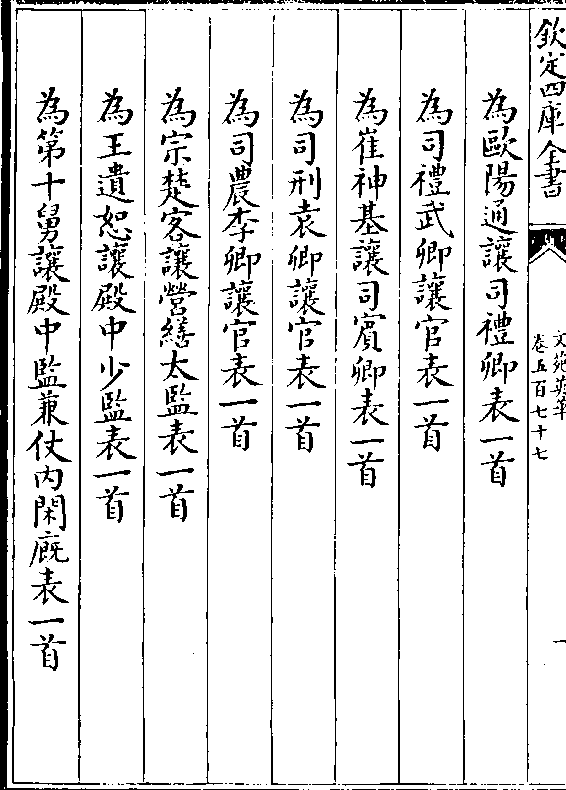 欽定四庫全書
文苑英華
卷五百七十七
一
為歐陽通讓司禮卿表一首
為司禮武卿讓官表一首
為崔神基讓司賓卿表一首
為司刑袁卿讓官表一首
為司農李卿讓官表一首
為宗楚客讓營繕太監表一首
為王遺恕讓殿中少監表一首
為第十舅讓殿中監兼仗內閑廐表一首